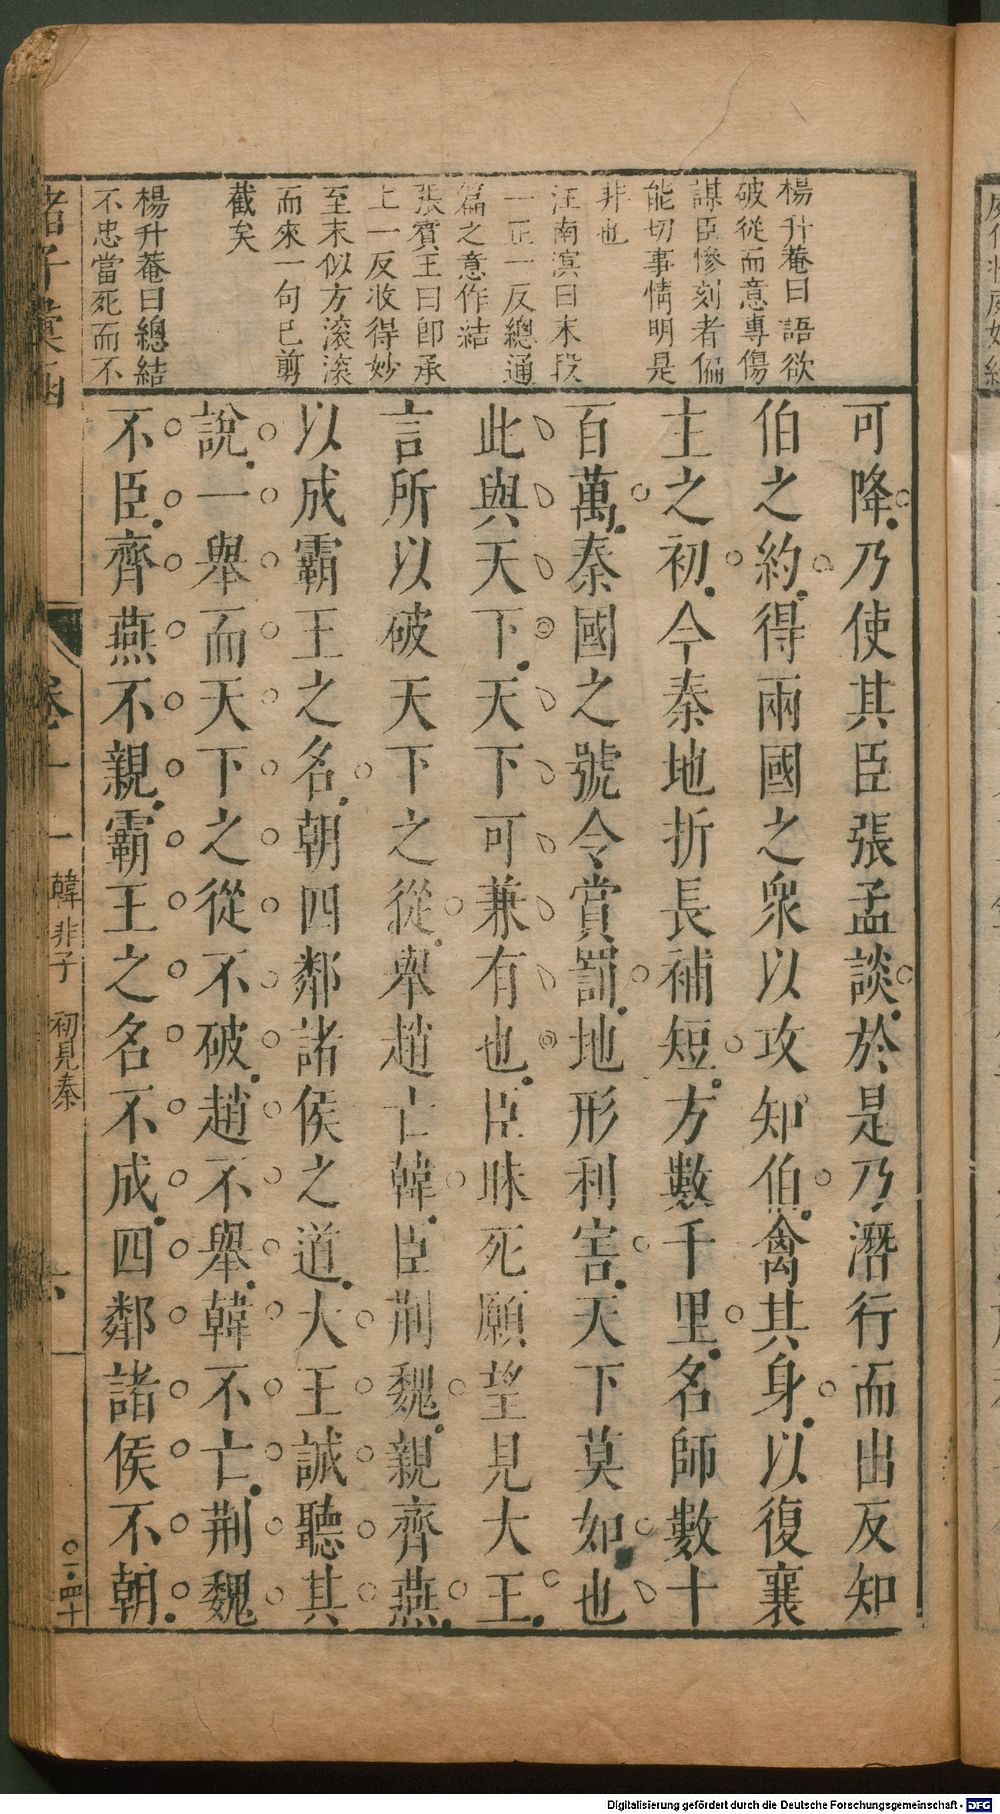 楊升菴曰語欲
破從而意專傷
謀臣慘刻者偏
能切事情明是
非也
汪南溟曰末段
一正一反總通
篇之意作結
張賓王曰即承
上一反收得妙
至末似方滾滾
而來一句已剪
截矣
楊升菴曰總結
不忠當死而不
可降乃使其臣張孟談於是乃潛行而出反知
伯之約得兩國之衆以攻知伯禽其身以復襄
主之初今秦地折長補短方數千里名師數十
百萬秦國之號令賞罰地形利害天下莫如也
此與天下天下可兼有也臣昧死願望見大王
言所以破天下之從舉趙亡韓臣荆魏親齊燕
以成霸王之名朝四鄰諸侯之道大王誠聽其
說一舉而天下之從不破趙不舉韓不亡荆魏
不臣齊燕不親霸王之名不成四鄰諸侯不朝
諸子彙函
卷十一
韓非子 初見秦
六
Digitalisierung gefördert durch die Deutsche Forschungsgemeinschaft - DFG